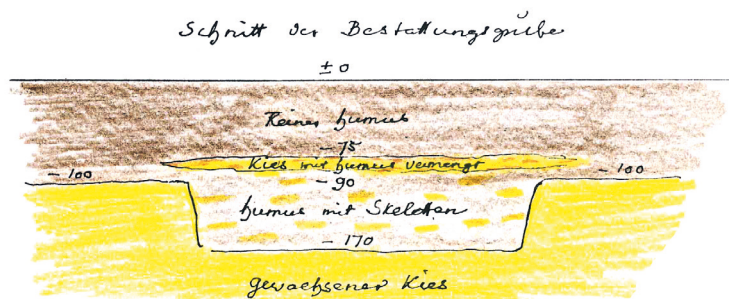 Schnitt der Bestattungsgrube
± 0
Reiner humus
- 75
Kies mit humus vermengt
- 100
- 100
- 90
humus mit Skeletten
- 170
gewachsener Kies